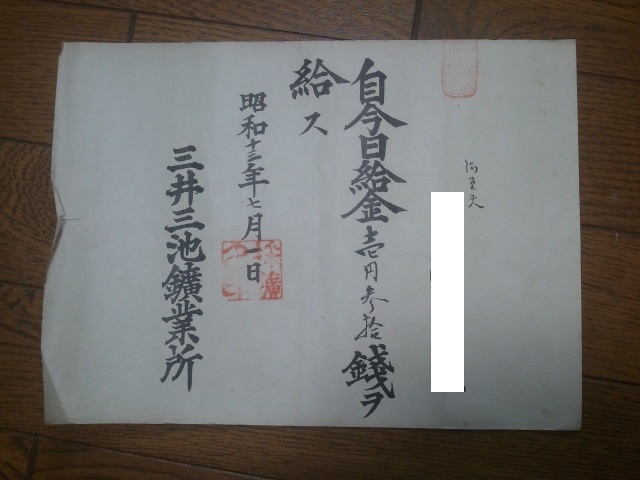 自今日給金壱円参拾錢ヲ
給ス
昭和十三年七月一日
三井三池鑛業所